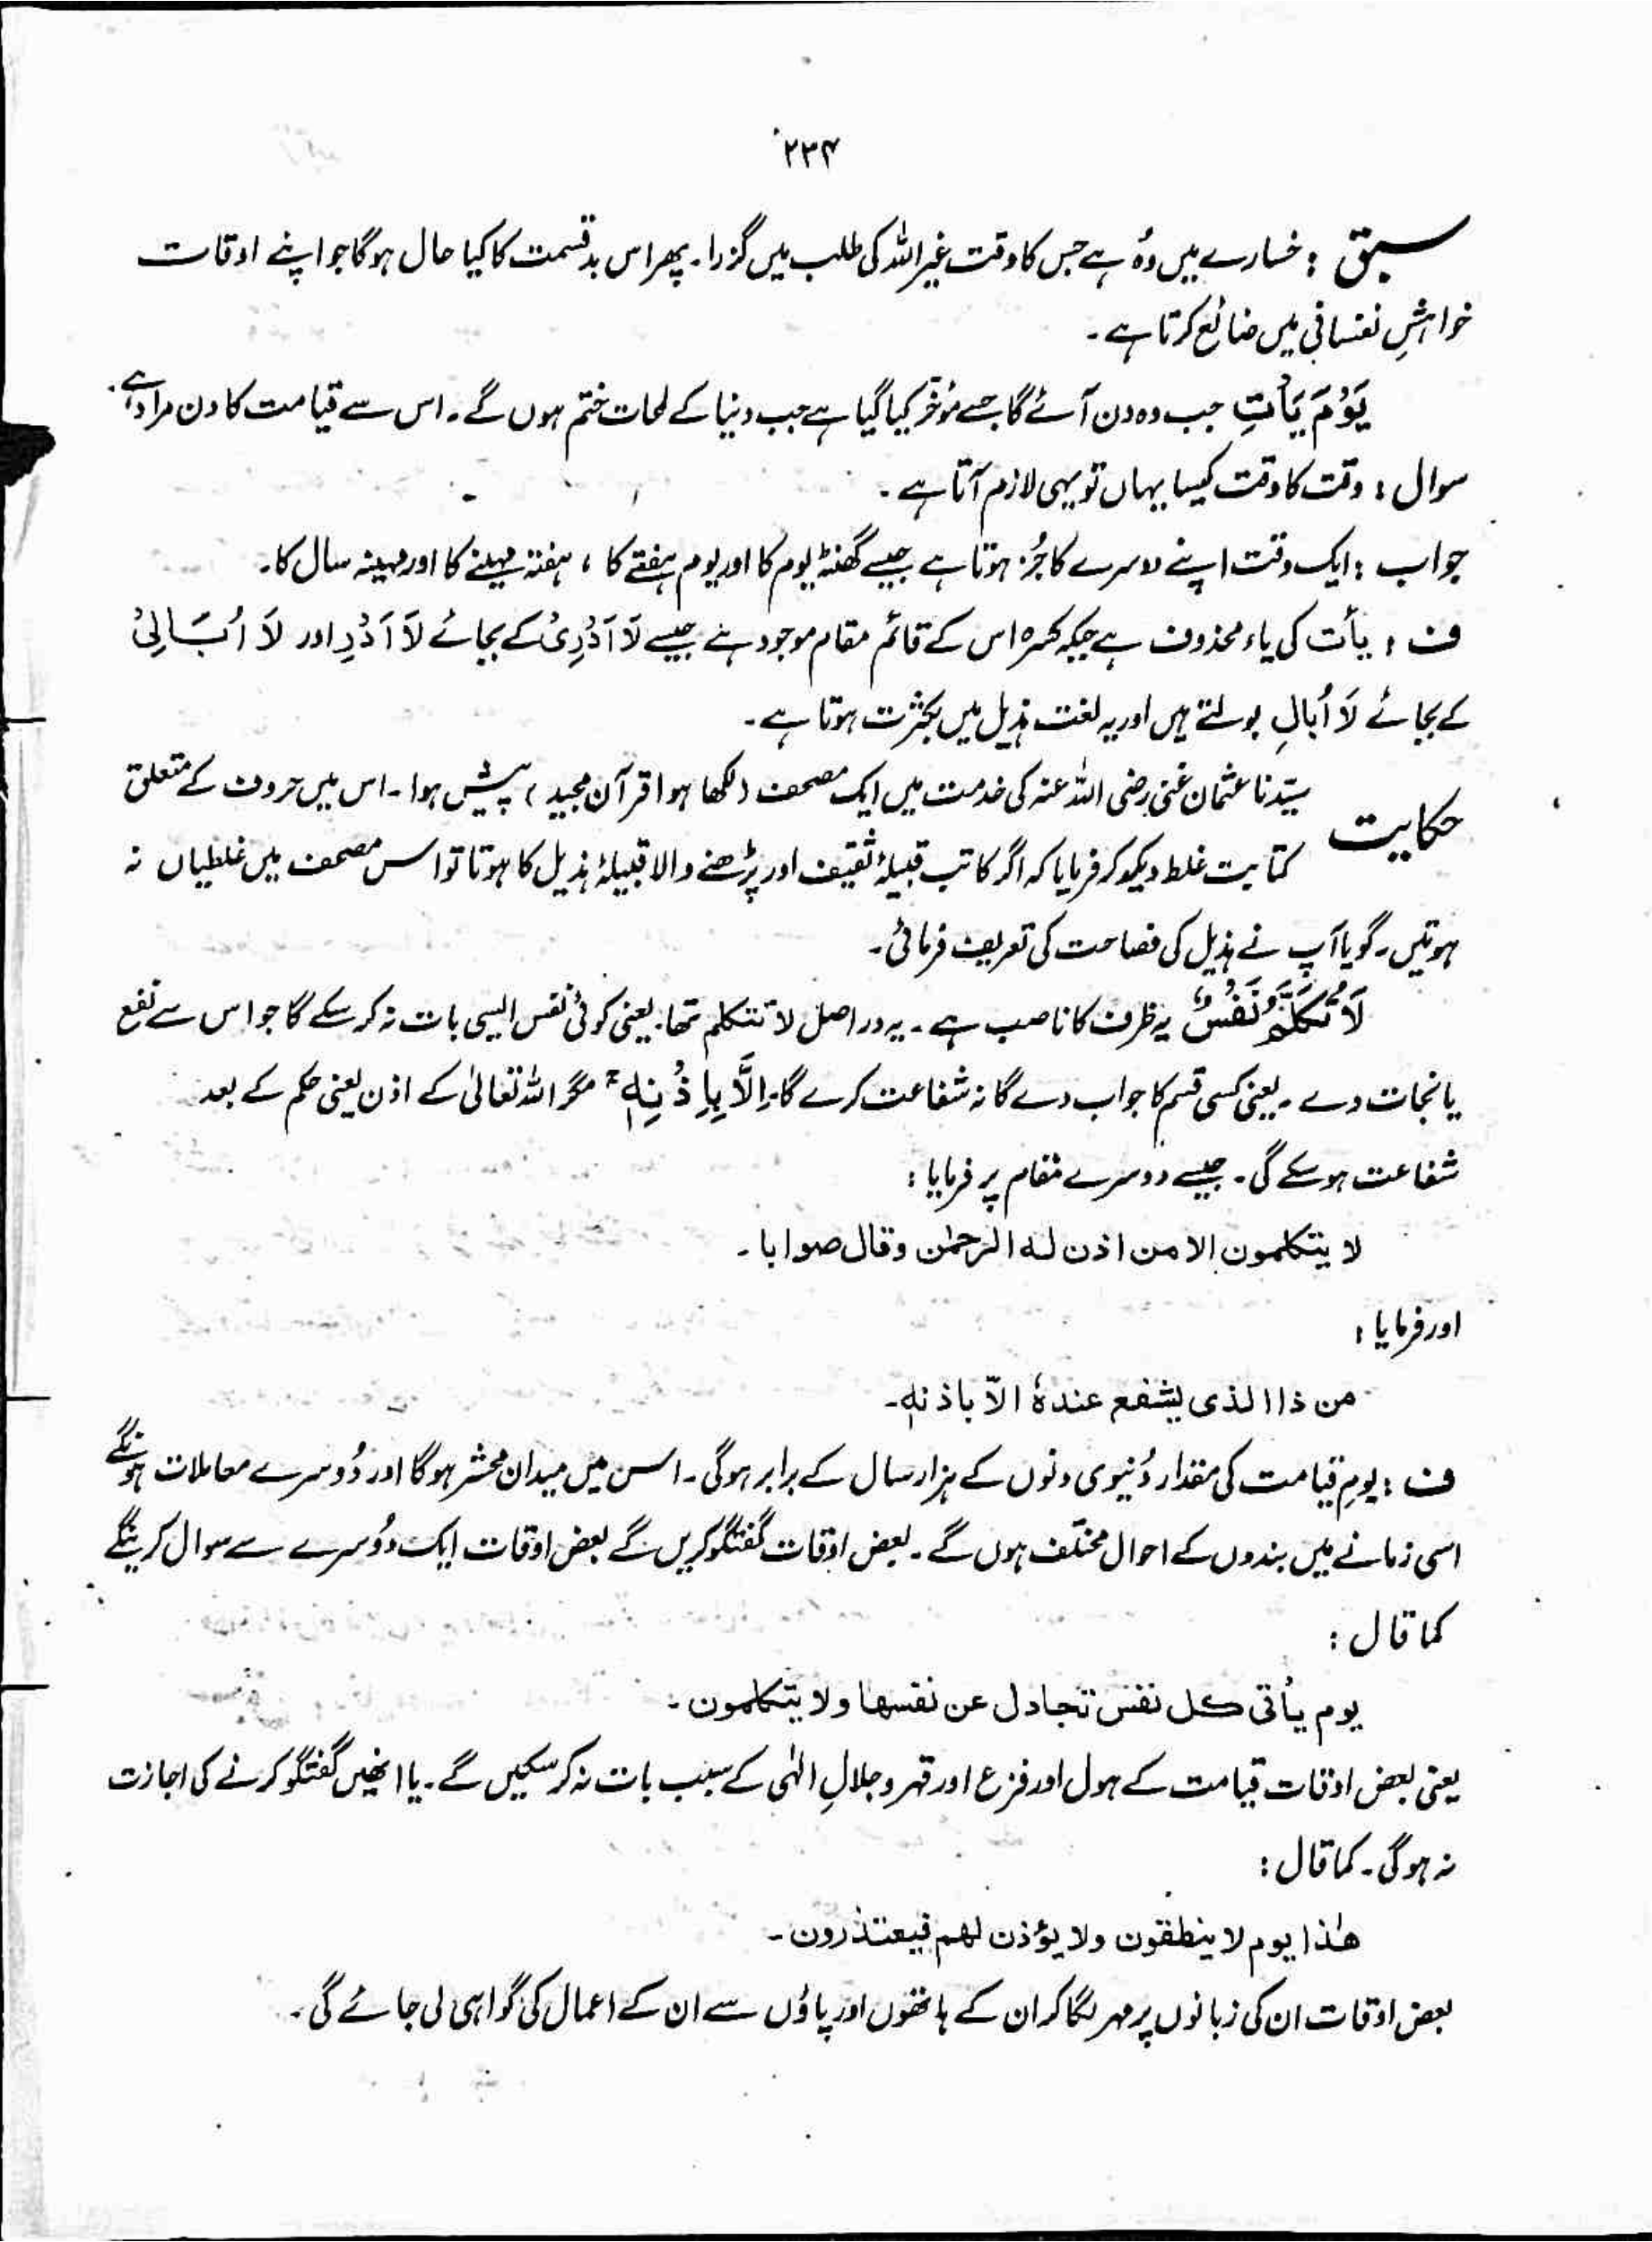 ۲۳۴
سبق : خسارے میں وہ ہے جس کا وقت غیر اللہ کی طلب میں گزرا۔ پھر اس بدقسمت کا کیا حال ہوگا جو اپنے اوقات
خواہشِ نفسانی میں ضائع کرتا ہے۔
يَوْمَ يَأْتِ جب وہ دن آئے گا جسے مؤخر کیا گیا ہے جب دنیا کے لمحات ختم ہوں گے۔ اس سے قیامت کا دن مراد ہے۔
سوال : وقت کا وقت کیسا یہاں تو یہی لازم آتا ہے۔
جواب : ایک وقت اپنے دوسرے کا جُز ہوتا ہے جیسے گھنٹہ یوم کا اور یوم ہفتے کا ، ہفتہ مہینے کا اور مہینہ سال کا۔
ف : یأت کی یاء محذوف ہے جبکہ کسرہ اس کے قائم مقام موجود ہے جیسے لَا اَدْرِیْ کے بجائے لَا اَدْرِ اور لَا اُبَالِیْ
کے بجائے لَا اُبَالِ بولتے ہیں اور یہ لغت ہذیل میں بکثرت ہوتا ہے۔
حکایت سیّدنا عثمان غنی رضی اللہ عنہ کی خدمت میں ایک مصحف (لکھا ہوا قرآن مجید) پیش ہوا۔ اس میں حروف کے متعلق
کتابت غلط دیکھ کر فرمایا کہ اگر کاتب قبیلۂ ثقیف اور پڑھنے والا قبیلۂ ہذیل کا ہوتا تو اس مصحف میں غلطیاں نہ
ہوتیں۔ گویا آپ نے ہذیل کی فصاحت کی تعریف فرمائی۔
لَا تَكَلَّمُ نَفْسٌ یہ ظرف کا ناصب ہے۔ یہ دراصل لا تتکلم تھا۔ یعنی کوئی نفس ایسی بات نہ کر سکے گا جو اس سے نفع
یا نجات دے۔ یعنی کسی قسم کا جواب دے گا نہ شفاعت کرے گا۔ اِلَّا بِاِذْنِهٖ ج مگر اللہ تعالیٰ کے اذن یعنی حکم کے بعد
شفاعت ہو سکے گی۔ جیسے دوسرے مقام پر فرمایا :
لا يتكلمون الا من اذن له الرحمٰن وقال صوابا۔
اور فرمایا :
من ذا الذى يشفع عندهٗ الّا باذنهٖ۔
ف : یومِ قیامت کی مقدار دُنیوی دنوں کے ہزار سال کے برابر ہوگی۔ اس میں میدان محشر ہوگا اور دُوسرے معاملات ہونگے
اسی زمانے میں بندوں کے احوال مختلف ہوں گے۔ بعض اوقات گفتگو کریں گے بعض اوقات ایک دوُسرے سے سوال کرینگے
کما قال :
يوم يأتى كل نفس تجادل عن نفسها ولا يتكلمون۔
یعنی بعض اوقات قیامت کے ہول اور فزع اور قہر و جلالِ الٰہی کے سبب بات نہ کر سکیں گے۔ یا انھیں گفتگو کرنے کی اجازت
نہ ہوگی۔ کما قال :
هٰذا يوم لا ينطقون ولا يؤذن لهم فيعتذرون۔
بعض اوقات ان کی زبانوں پر مہر لگا کر ان کے ہاتھوں اور پاؤں سے ان کے اعمال کی گواہی لی جائے گی۔